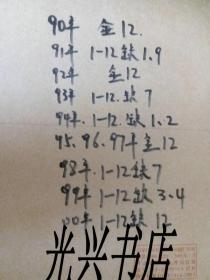 90年 全12.
91年 1-12缺1.9
92年 全12
93年 1-12.缺7
94年.1-12.缺1.2
95.96.97年全12
98年.1-12缺7
99年 1-12缺3.4
00年 1-12缺12
光兴书店